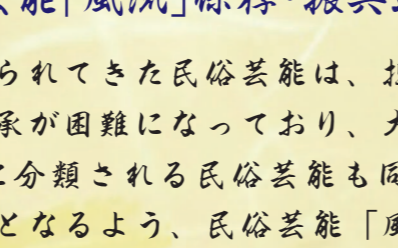 能「風流」保存・振興
られてきた民俗芸能は、
承が困難になっており、
分類される民俗芸能も同
となるよう、民俗芸能「風